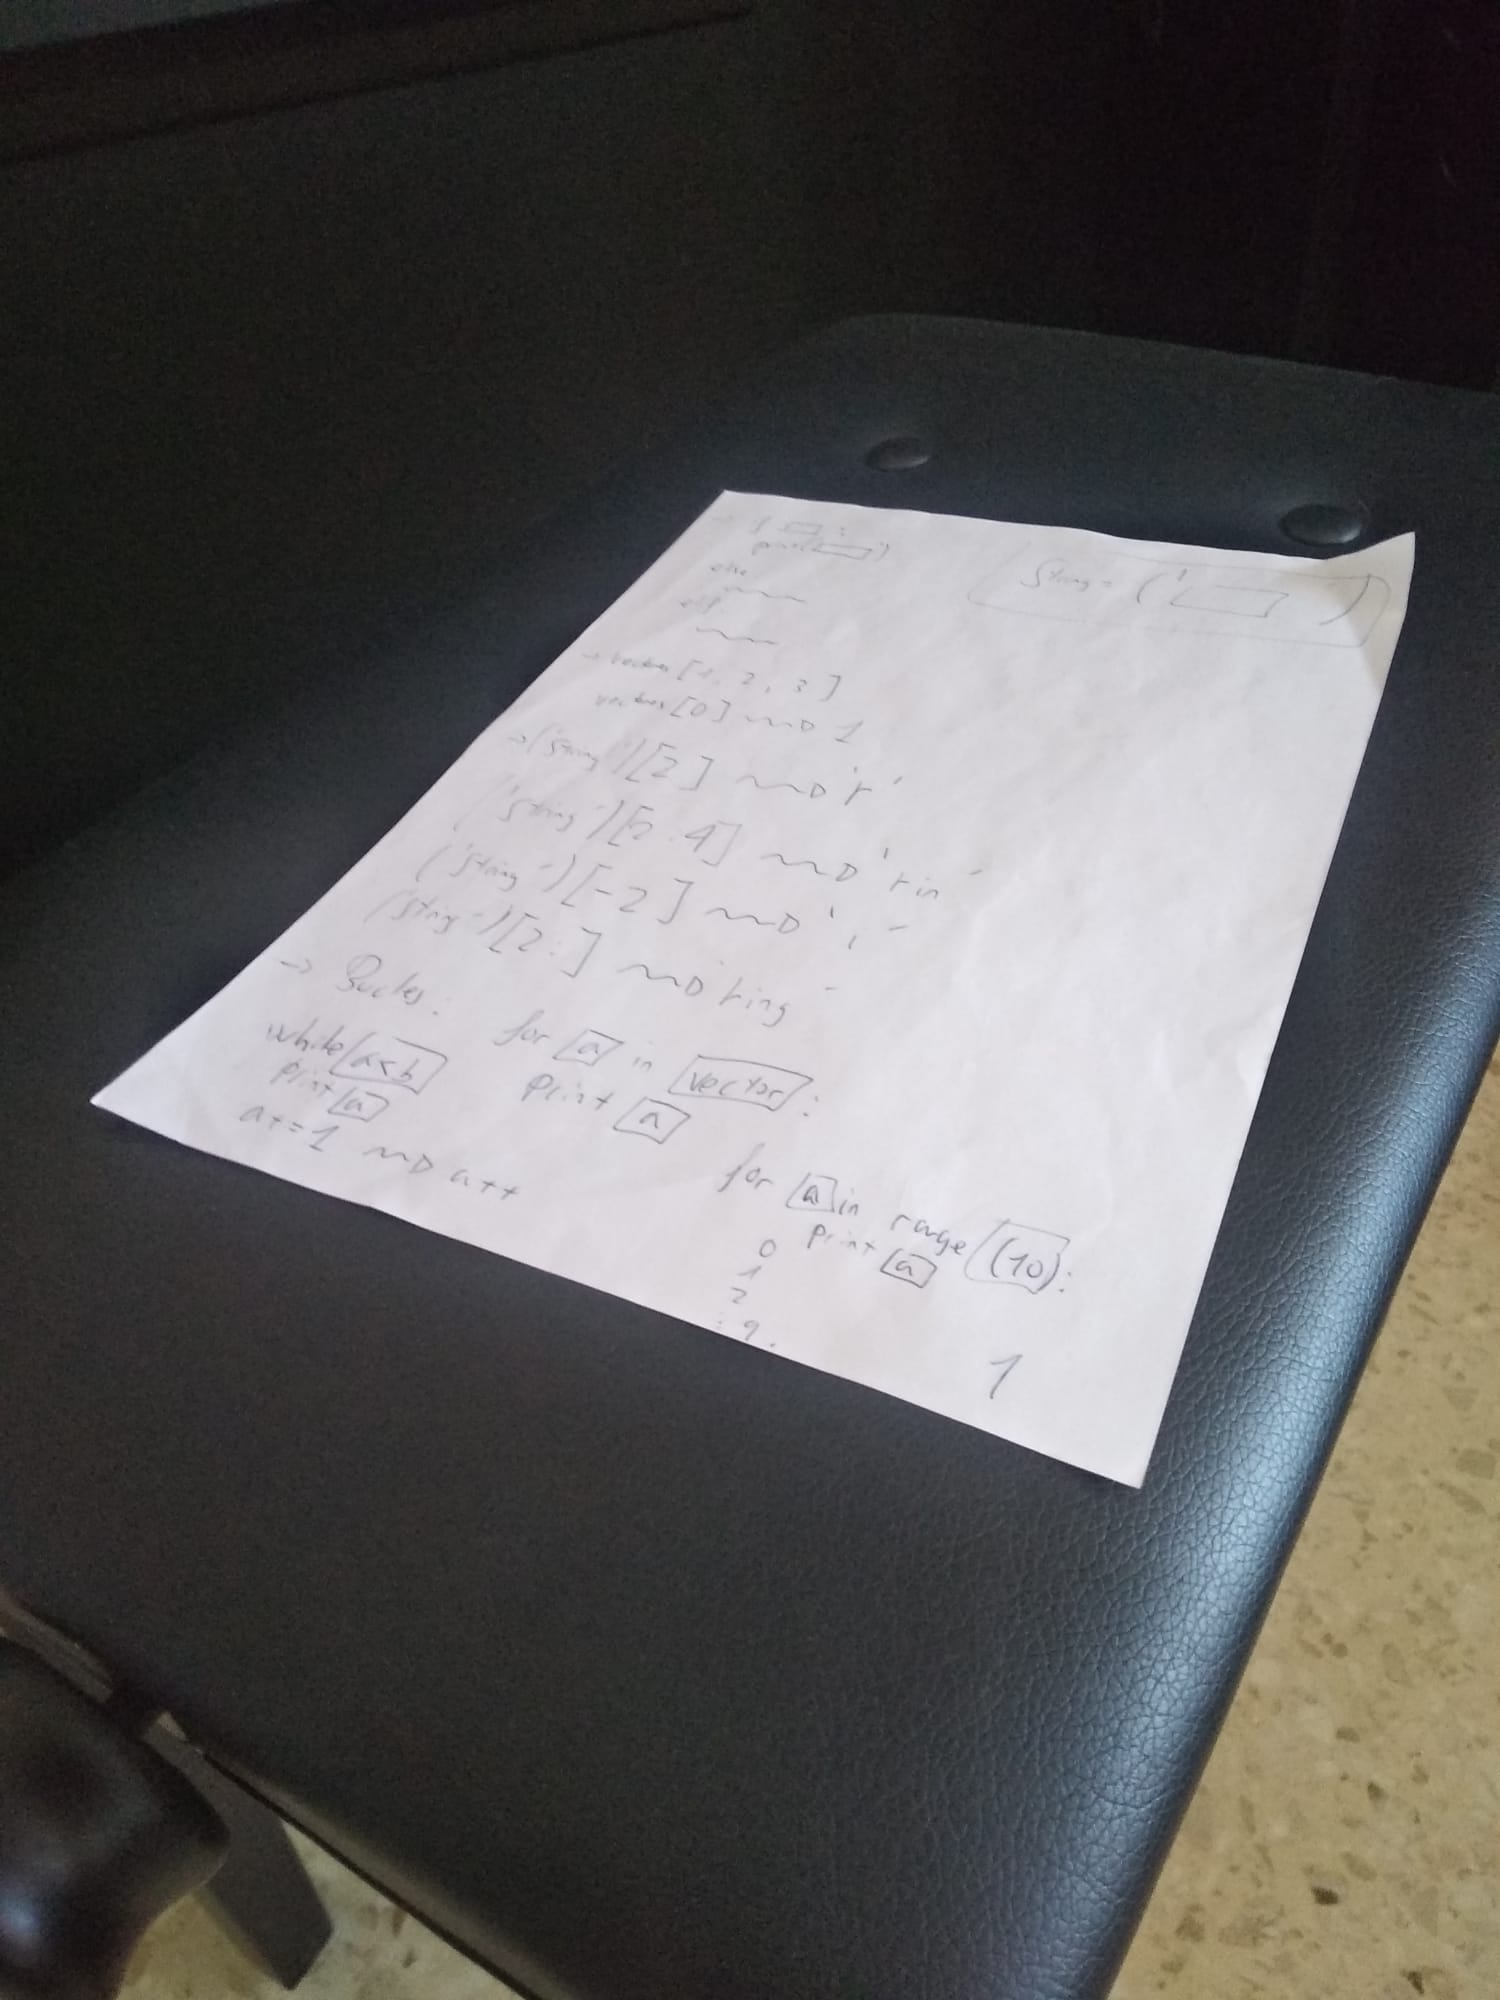 → if ▭ :
print(▭')
String = ('▭ )
else
elif
→ vector [1, 2, 3]
vector [0] ⟿ 1
→ ('String') [2] ⟿ 'r'
('String') [2:4] ⟿ 'rin'
('String') [-2] ⟿ 'i'
('String') [2:] ⟿ 'ring'
→ Bucles:
while a<b
print a
a+=1 ⟿ a++
for a in vector:
print a
for a in range (10):
print a
0
1
2
: 9.
1